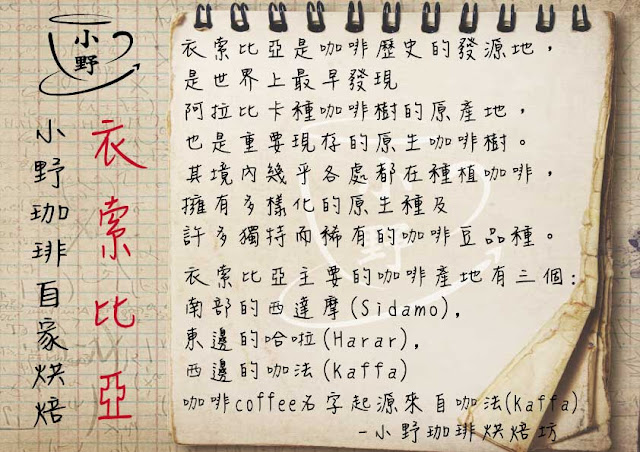 小野
小野珈琲自家烘焙
衣索比亞
衣索比亞是咖啡歷史的發源地，
是世界上最早發現
阿拉比卡種咖啡樹的原產地，
也是重要現存的原生咖啡樹。
其境內幾乎各處都在種植咖啡，
擁有多樣化的原生種及
許多獨特而稀有的咖啡豆品種。
衣索比亞主要的咖啡產地有三個:
南部的西達摩(Sidamo),
東邊的哈啦(Harar),
西邊的咖法(Kaffa)
咖啡coffee名字起源來自咖法(Kaffa)
-小野珈琲烘焙坊
小野